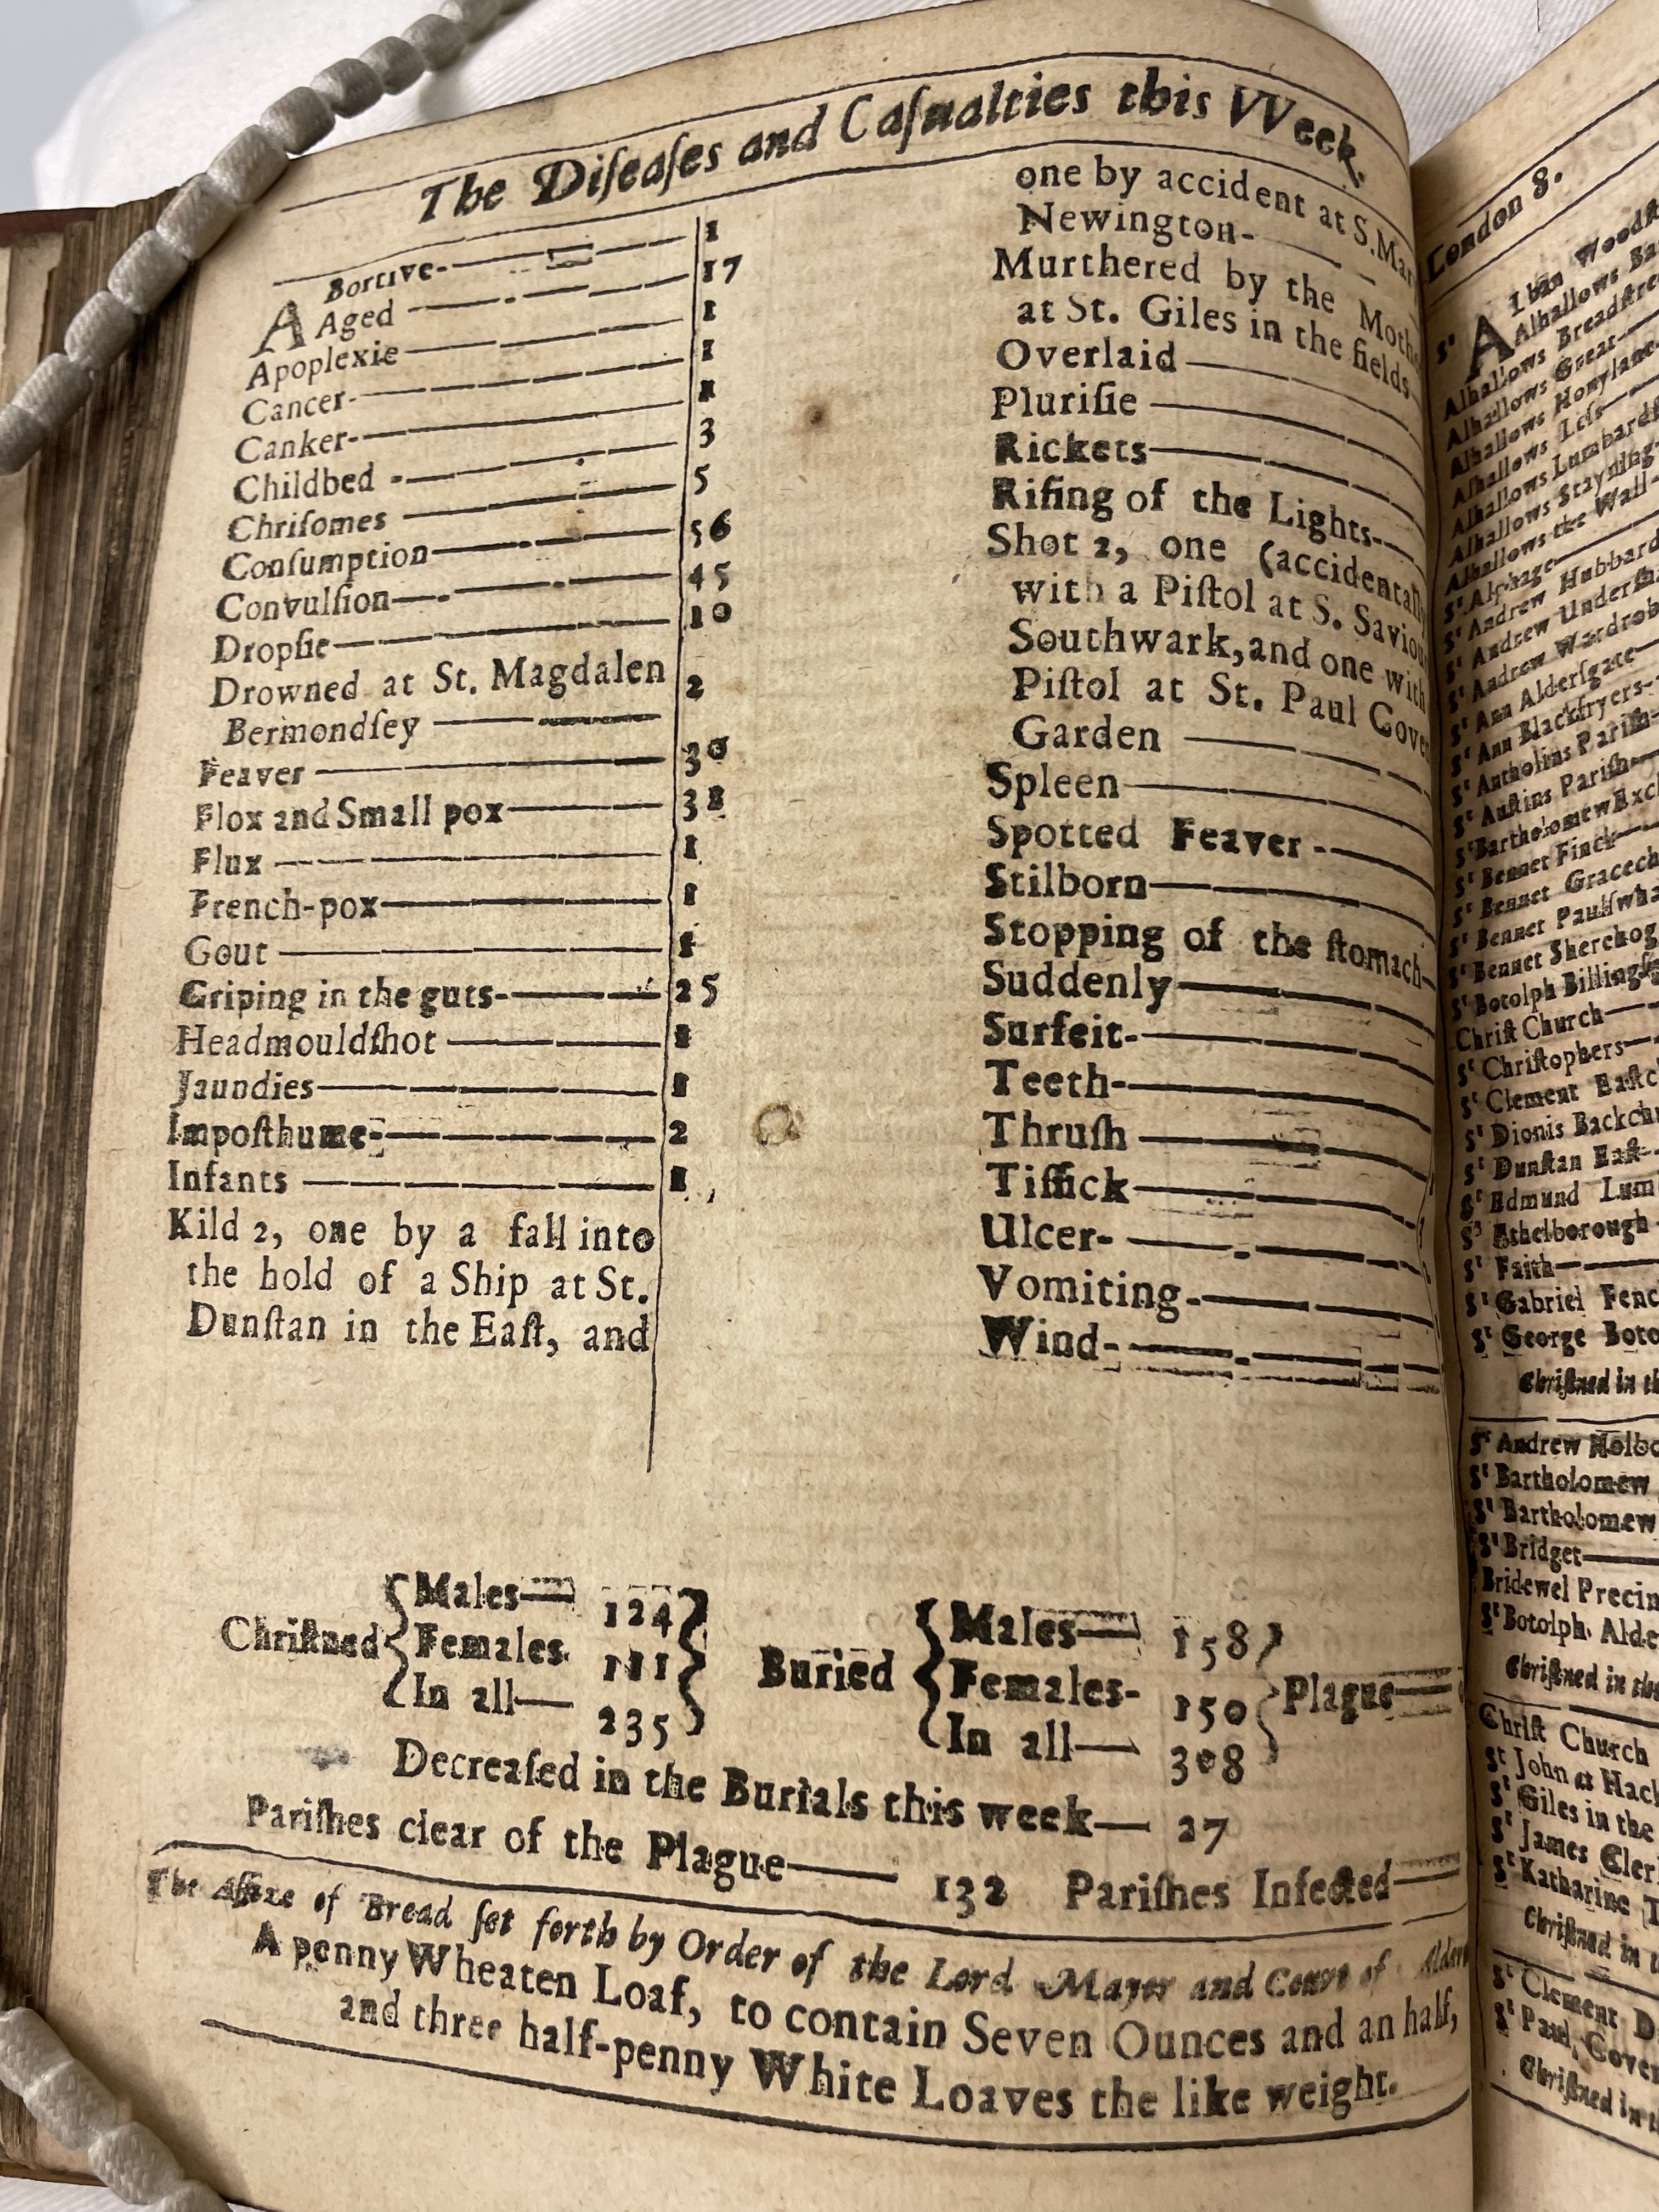 The Diſeaſes and Caſualties this VVeek.
ABortive 1
Aged 17
Apoplexie 1
Cancer 1
Canker 1
Childbed 3
Chriſomes 5
Conſumption 56
Convulſion 45
Dropſie 10
Drowned at St. Magdalen
Bermondſey 2
Feaver 30
Flox and Small pox 38
Flux 1
French-pox 1
Gout 1
Griping in the guts 25
Headmouldſhot 1
Jaundies 1
Impoſthume 2
Infants 1
Kild 2, one by a fall into
the hold of a Ship at St.
Dunſtan in the Eaſt, and
one by accident at S.
Newington
Murthered by the
at St. Giles in the fields
Overlaid
Pluriſie
Rickets
Riſing of the Lights
Shot 2, one
with a Piſtol at S.
Southwark, and one with
Piſtol at St. Paul
Garden
Spleen
Spotted Feaver
Stilborn
Stopping of the ſtomach
Suddenly
Surfeit
Teeth
Thruſh
Tiſſick
Ulcer
Vomiting
Wind
Chriſtned
Males 124
Females 111
In all 235
Buried
Males 158
Females 150
In all 308
Plague
Decreaſed in the Burials this week 27
Pariſhes clear of the Plague 132 Pariſhes Infected
The Aſſize of Bread ſet forth by Order of the Lord Mayor and Court of
A penny Wheaten Loaf, to contain Seven Ounces and an half,
and three half-penny White Loaves the like weight.
London 8.
Sᵗ Alban
Alhallows
Alhallows
Alhallows Great
Alhallows Honylane
Alhallows Leſs
Alhallows
Alhallows Stayning
Alhallows the Wall
Sᵗ Alphage
Sᵗ Andrew Hubbard
Sᵗ Andrew
Sᵗ Andrew
Sᵗ Ann Alderſgate
Sᵗ Ann Blackfryers
Sᵗ Antholins Pariſh
Sᵗ Auſtins Pariſh
Sᵗ Bartholomew
Sᵗ Bennet Finck
Sᵗ Bennet
Sᵗ Bennet
Sᵗ Bennet
Sᵗ Botolph
Chriſt Church
Sᵗ Chriſtophers
Sᵗ Clement
Sᵗ Dionis
Sᵗ Dunſtan Eaſt
Sᵗ Edmund
Sᵗ Ethelborough
Sᵗ Faith
Sᵗ Gabriel
Sᵗ George
Chriſtned in
Sᵗ Andrew
Sᵗ Bartholomew
Sᵗ Bartholomew
Sᵗ Bridget
Bridewel
Sᵗ Botolph
Chriſtned in
Chriſt Church
St John at
Sᵗ Giles in the
Sᵗ James
Sᵗ Katharine
Chriſtned in
Sᵗ Clement
Sᵗ Paul
Chriſtned in